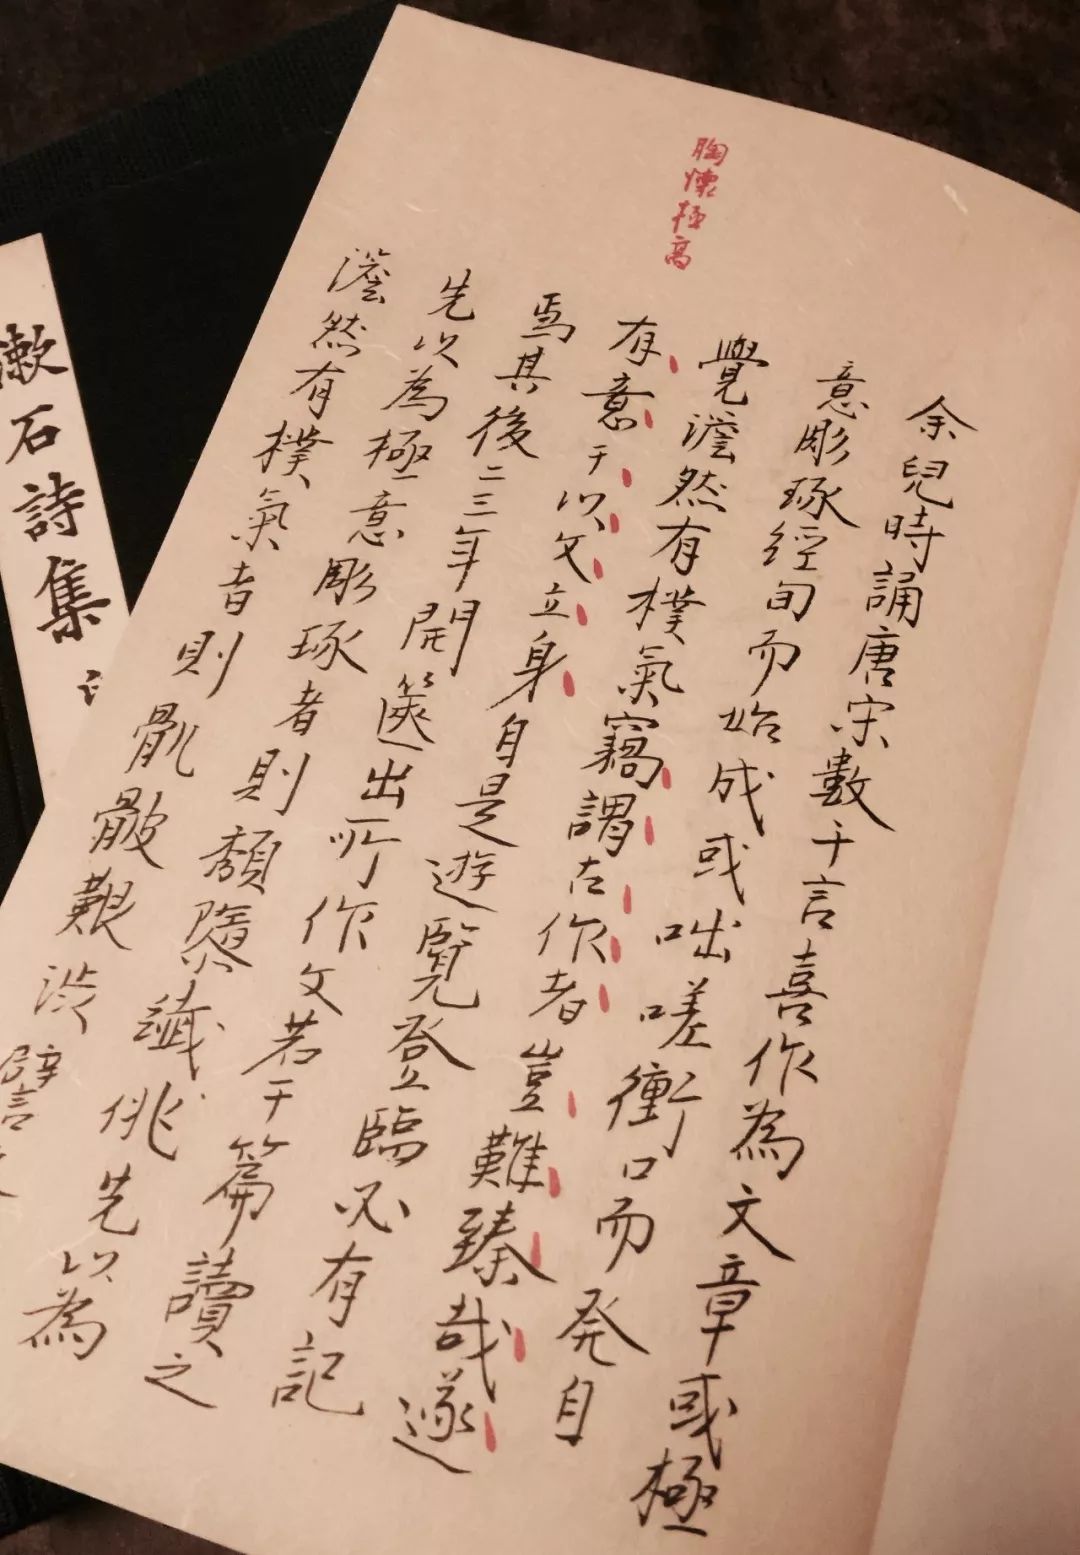 胸懷極高
余兒時誦唐宋數千言喜作為文章或極
意彫琢經旬而始成或咄嗟衝口而発自
覺澹然有樸氣竊謂古作者豈難臻哉遂
有意于以文立身自是遊覽登臨必有記
焉其後二三年開篋出所作文若干篇讀之
先以為極意彫琢者則頽隳纎佻先以為
澹然有樸氣者則骩骳艱澁譬
漱石詩集